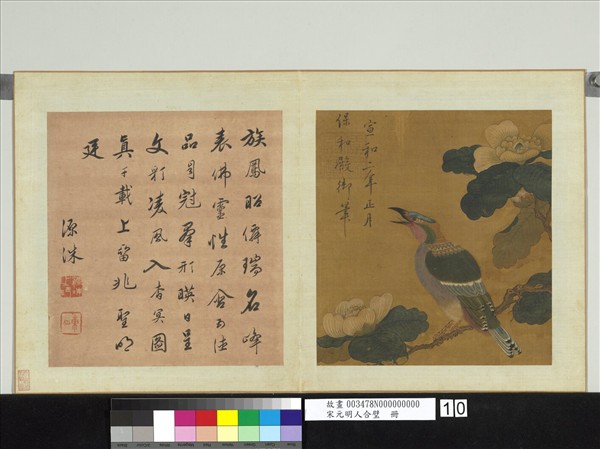 宣和二年正月
保和殿御筆
族鳳昭瑞名峰
表佛靈性原含五德
品自冠羣形暎日呈
文彩凌風入杳冥圖
真千載上留兆聖明
廷
源洙
故畫 003478N000000000
宋元明人合璧 冊
10